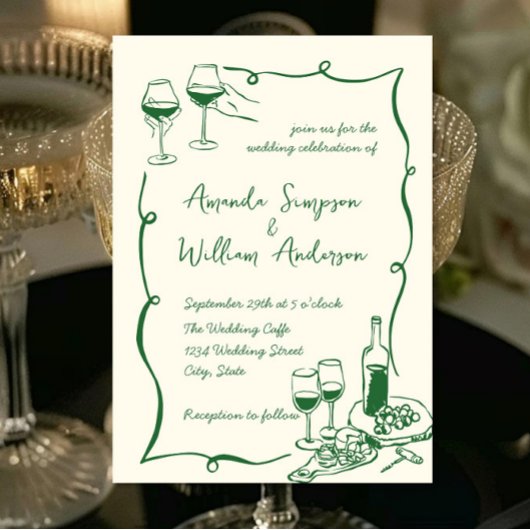 join us for the
wedding celebration of
Amanda Simpson
&
William Anderson
September 29th at 5 o'clock
The Wedding Caffe
1234 Wedding Street
City, State
Reception to follow